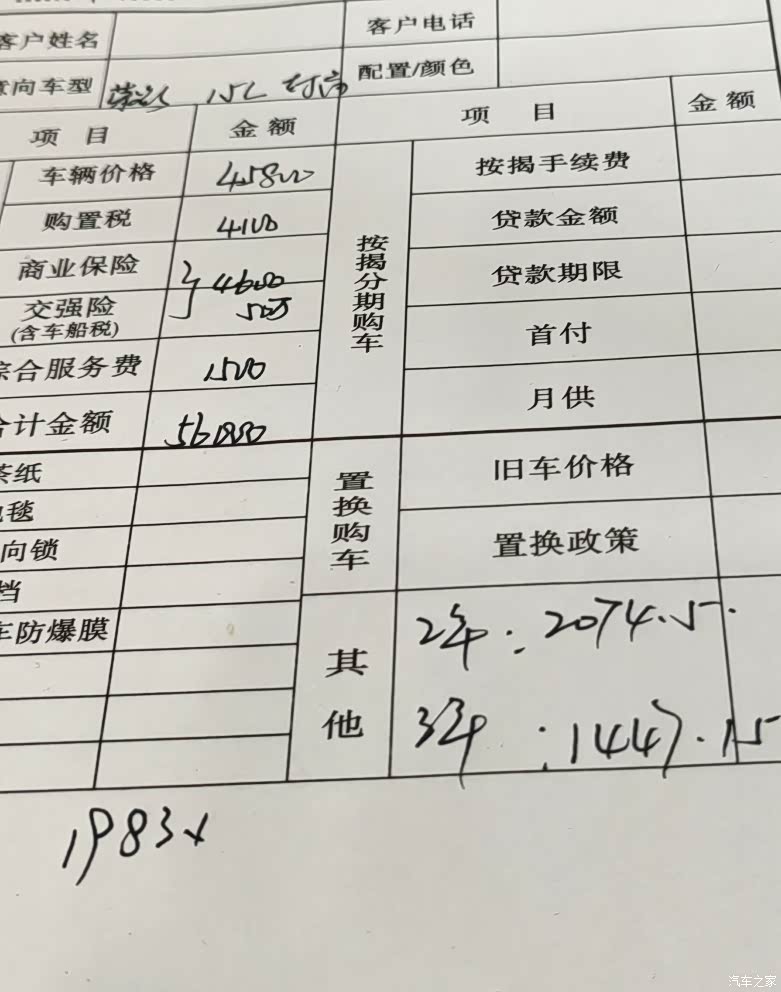 客户姓名 客户电话
意向车型 1.5L 配置/颜色
项目 金额 项目 金额
车辆价格 45800 按揭手续费
购置税 4100 贷款金额
商业保险 4600 贷款期限
交强险 首付
(含车船税)
综合服务费 1500 月供
合计金额
按揭分期购车
茶纸 旧车价格
地毯 置换政策
向锁
档
置换购车
车防爆膜
其他
2年:2074.5.
3年:1447.15
1983
汽车之家